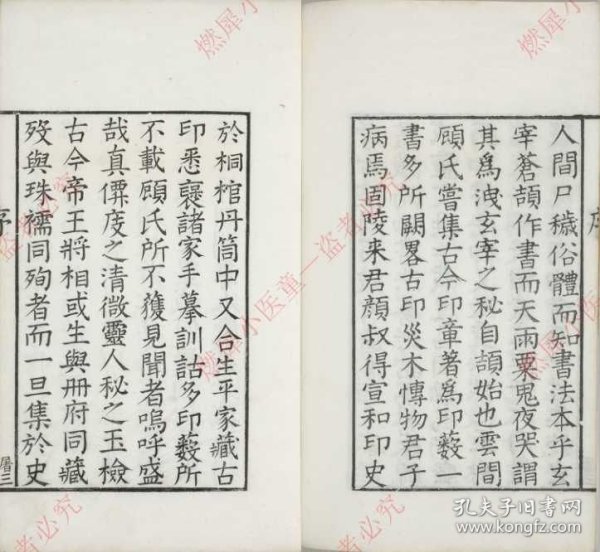 人間尸穢俗體而知書法本乎玄
宰蒼頡作書而天雨粟鬼夜哭謂
其為洩玄宰之秘自頡始也雲間
顧氏嘗集古今印章著為印藪一
書多所闕畧古印災木愽物君子
病焉固陵来君顔叔得宣和印史
於桐棺丹筒中又合生平家藏古
印悉襄諸家手摹訓詁多印藪所
不載顧氏所不獲見聞者嗚呼盛
哉真僲度之清微靈人秘之玉檢
古今帝王將相或生與冊府同藏
殁與珠襦同殉者而一旦集於史
序
屠三
燃犀小医童—盗者必究
孔夫子旧书网
www.kongfz.com